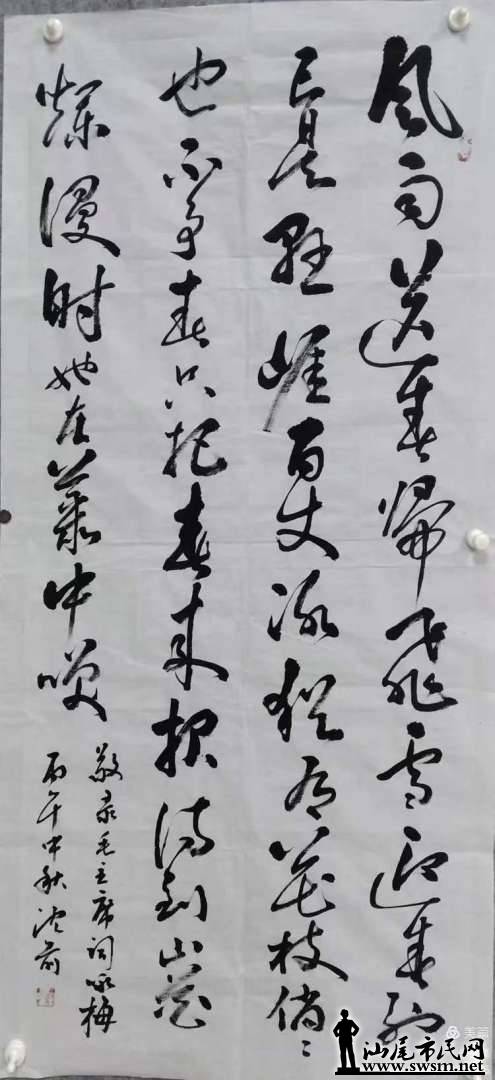 风雨送春歸飛雪迎春到
已是懸崖百丈冰犹有花枝俏〻
也不争春只把春来报待到山花
爛漫时她在叢中咲
敬录毛主席词咏梅
丙午中秋
美篇
汕尾市民网
www.swsm.net